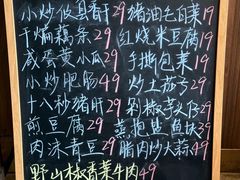 小炒攸县香干29 猪油毛白菜19
干煸藕条29 红烧米豆腐29
咸蛋黄小瓜29 手撕包菜19
小炒肥肠49 炒土茄子29
十八秒猪肝49 剁椒芋头仔29
煎豆腐29 蒸抱盐鱼块39
肉沫青豆29 腊肉炒大蒜49
野山椒香菜牛肉49